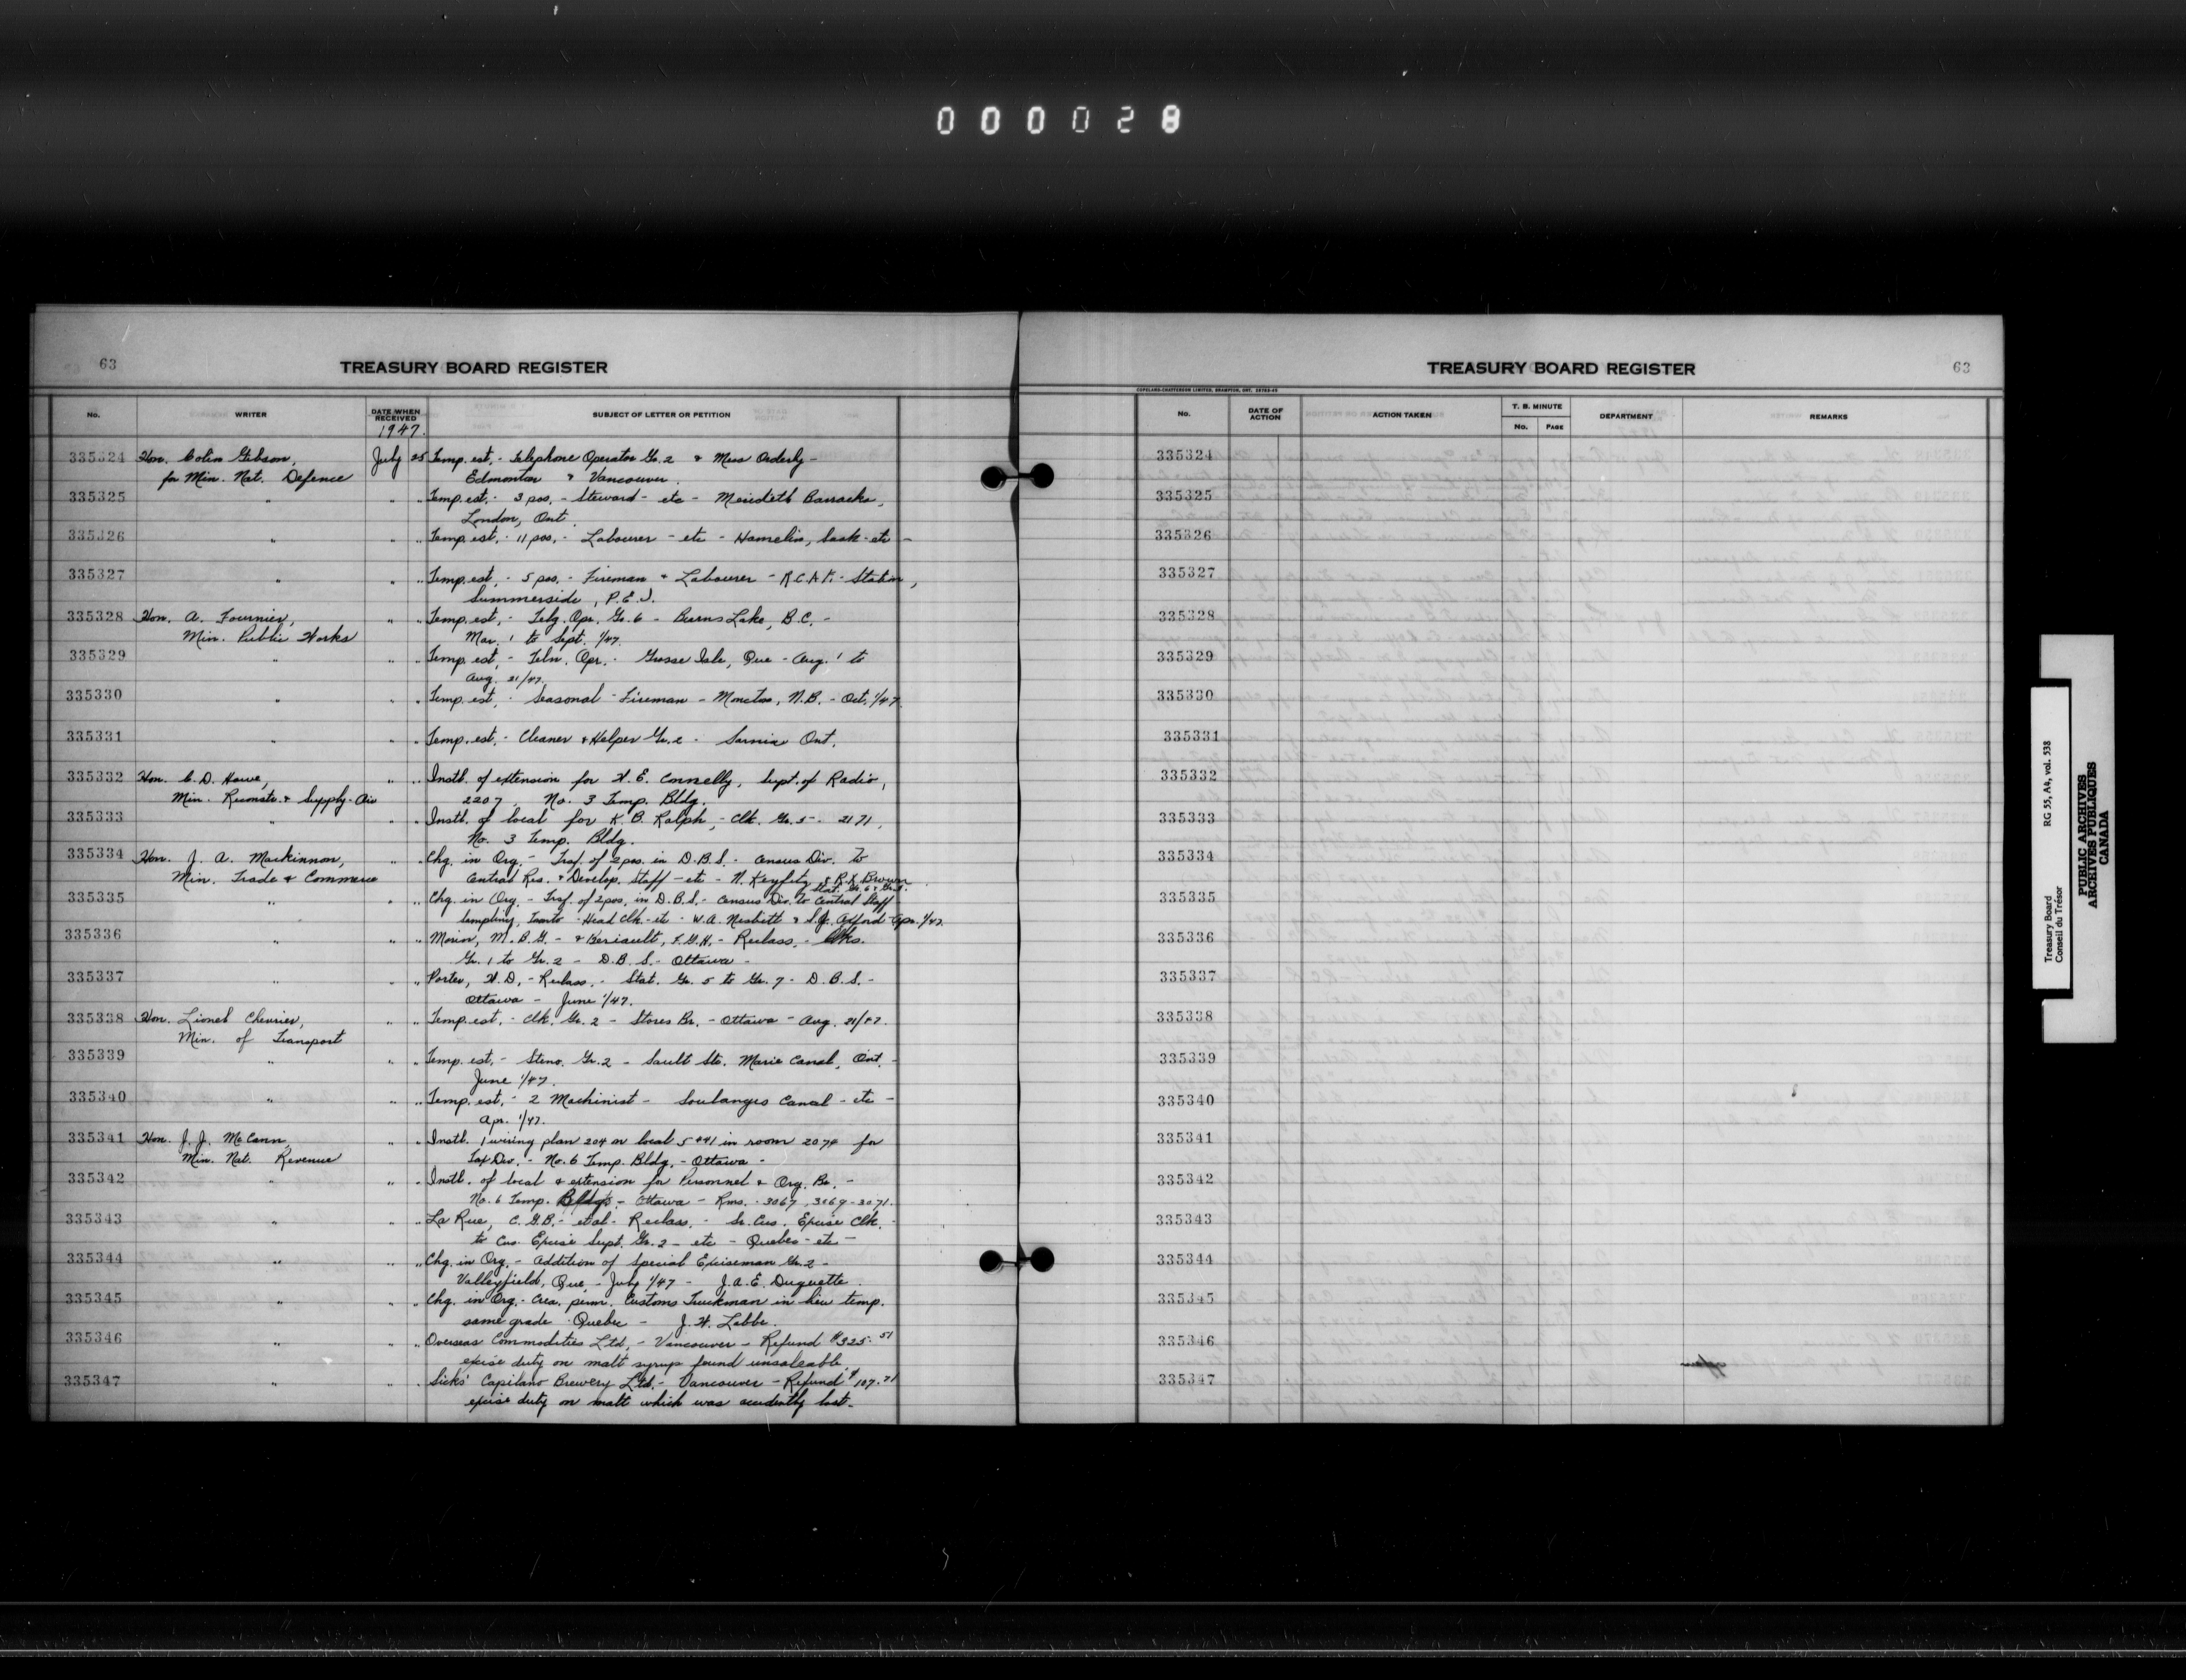 000028
63
TREASURY BOARD REGISTER
No.
WRITER
DATE WHEN RECEIVED
SUBJECT OF LETTER OR PETITION
1947.
335324 Hon. Colin Gibson, July 25 Temp. est. - Telephone Operator Gr. 2 & Mess Orderly -
for Min. Nat. Defence Edmonton & Vancouver.
335325 " " " Temp. est. - 3 pos. - Steward - etc - Meredith Barracks,
London, Ont.
335326 " " " Temp. est. - 11 pos. - Labourer - etc - Hamelin, Sask - etc -
335327 " " " Temp. est. - 5 pos. - Fireman & Labourer - R.C.A.F. - Station,
Summerside, P.E.I.
335328 Hon. A. Fournier, " " Temp. est. - Telg. Opr. Gr. 6 - Burns Lake, B.C. -
Min. Public Works Mar. 1 to Sept. 1/47.
335329 " " " Temp. est. - Teln. Opr. - Grosse Isle, Que - Aug. 1 to
Aug. 21/47.
335330 " " " Temp. est. - Seasonal - Fireman - Moncton, N.B. - Oct. 1/47.
335331 " " " Temp. est. - Cleaner & Helper Gr. 2 - Sarnia Ont.
335332 Hon. C. D. Howe, " " Instl. of extension for W. E. Connelly, Supt. of Radio,
Min. Reconstr. & Supply - Air 2207, No. 3 Temp. Bldg.
335333 " " " Instl. of local for K. B. Ralph, - Clk. Gr. 5 - 2171,
No. 3 Temp. Bldg.
335334 Hon. J. A. Mackinnon, " " Chg. in Org. - Trsf. of 2 pos. in D.B.S. - Census Div. to
Min. Trade & Commerce Central Res. & Develop. Staff - etc - N. Keyfitz & R. K. Brown
Stat. Gr. 6 &
335335 " " " Chg. in Org. - Trsf. of 2 pos. in D.B.S. - Census Div. to Central Staff
sampling, Toronto - Head Clk - etc - W. A. Nesbitt & S. J. Axford - Apr. 1/47.
335336 " " " Morin, M. B. G. - & Beriault, F. G. H. - Reclass. - Clks.
Gr. 1 to Gr. 2 - D.B.S. - Ottawa -
335337 " " " Porter, W. D. - Reclass. - Stat. Gr. 5 to Gr. 7 - D.B.S. -
Ottawa - June 1/47.
335338 Hon. Lionel Chevrier, " " Temp. est. - Clk. Gr. 2 - Stores Br. - Ottawa - Aug. 21/47.
Min. of Transport
335339 " " " Temp. est. - Steno. Gr. 2 - Sault Ste. Marie Canal, Ont. -
June 1/47.
335340 " " " Temp. est. - 2 Machinist - Soulanges Canal - etc -
Apr. 1/47.
335341 Hon. J. J. McCann, " " Instl. 1 wiring plan 204 on local 5441 in room 2074 for
Min. Nat. Revenue Tax Div. - No. 6 Temp. Bldg. - Ottawa -
335342 " " " Instl. of local & extension for Personnel & Org. Br. -
No. 6 Temp. Bldg. - Ottawa - Rms. 3067 - 3069 - 3071.
335343 " " " La Rue, C. G. B. - et al - Reclass. - Sr. Cus. Excise Clk.
to Cus. Excise Supt. Gr. 2 - etc - Quebec - etc -
335344 " " " Chg. in Org. - Addition of Special Exciseman Gr. 2 -
Valleyfield, Que. - July 1/47 - J. A. E. Duquette.
335345 " " " Chg. in Org. - Crea. perm. Customs Truckman in lieu temp.
same grade - Quebec - J. H. Labbe.
335346 " " " Overseas Commodities Ltd. - Vancouver - Refund $325.51
excise duty on malt syrup found unsaleable.
335347 " " " Sicks' Capilano Brewery Ltd. - Vancouver - Refund $107.71
excise duty on malt which was accidently lost.
TREASURY BOARD REGISTER
63
COPELAND-CHATTERSON LIMITED, BRAMPTON, ONT.
No.
DATE OF ACTION
ACTION TAKEN
T. B. MINUTE
No.
PAGE
DEPARTMENT
REMARKS
335324
335325
335326
335327
335328
335329
335330
335331
335332
335333
335334
335335
335336
335337
335338
335339
335340
335341
335342
335343
335344
335345
335346
335347
Treasury Board
Conseil du Trésor
RG 55, A4, vol. 538
PUBLIC ARCHIVES
ARCHIVES PUBLIQUES
CANADA